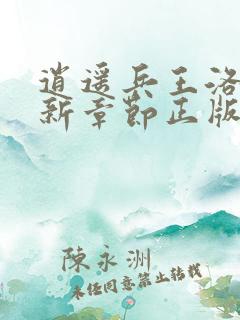 逍遥兵王洛
新章节正版
陳永洲
未经同意禁止转载